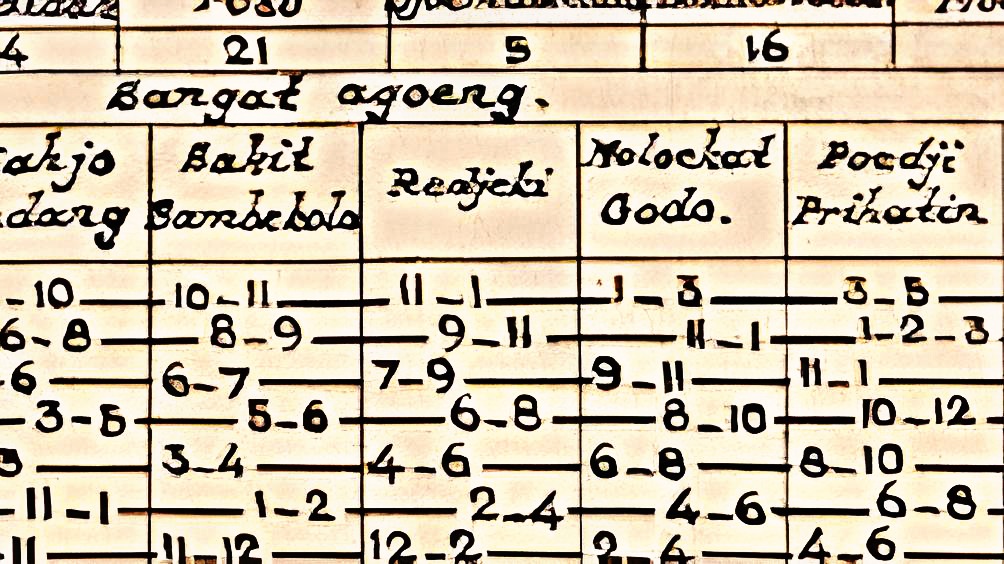 4 21 5 16
Sangat agoeng.
Sakit Redjeki Moloekat Poedji
Sambekolo Godo. Prihatin
-10 10-11 11-1 1-3 3-5
6-8 8-9 9-11 11-1 1-2-3
-6 6-7 7-9 9-11 11-1
3-5 5-6 6-8 8-10 10-12
3-4 4-6 6-8 8-10
-11-1 1-2 2-4 4-6 6-8
-11 11-12 12-2 2-4 4-6